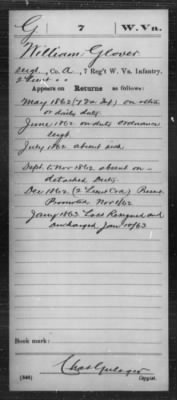 G | 7 | W. Va.
William Glover
Sergt., Co. A, 7 Reg't W. Va. Infantry.
2 Lieut
Appears on Returns as follows:
May 1862 on extra
or daily duty.
June 1862 on duty Ordnance
Sergt.
July 1862 absent sick
Sept. to Nov 1862 absent on
detached Duty.
Dec 1862 (2 Lieut Co A)
Promoted Nov 1/62
Jany 1863 Loss Resigned and
discharged Jan 10/63
Book mark:
(546) Copyist.